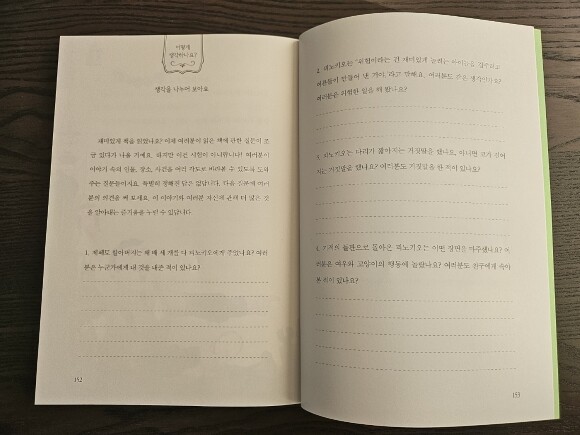 어떻게
생각하나요?
생각을 나누어 보아요
재미있게 책을 읽었나요? 이제 여러분이 읽은 책에 관한 질문이 조
금 있다가 나올 거예요. 하지만 이건 시험이 아니랍니다! 여러분이
이야기 속의 인물, 장소, 사건을 여러 각도로 바라볼 수 있도록 도와
주는 질문들이지요. 특별히 정해진 답은 없답니다. 다음 질문에 여러
분의 의견을 써 보세요. 이 이야기와 여러분 자신에 관해 더 많은 것
을 알아내는 즐거움을 누릴 수 있답니다.
1. 제페토 할아버지는 왜 배 세 개를 다 피노키오에게 주었나요? 여러
분은 누군가에게 내 것을 내준 적이 있나요?
152
2. 피노키오는 '위험이라는 건 재미있게 놀려는 아이들을 겁주려고
어른들이 만들어 낸 거야.'라고 말해요. 여러분도 같은 생각인가요?
여러분은 위험한 일을 해 봤나요?
3. 피노키오는 다리가 짧아지는 거짓말을 했나요, 아니면 코가 길어
지는 거짓말을 했나요? 여러분도 거짓말을 한 적이 있나요?
4. 들판으로 돌아온 피노키오는 어떤 장면을 마주했나요? 여
러분은 여우와 고양이의 행동에 놀랐나요? 여러분도 친구에게 속아
본 적이 있나요?
153